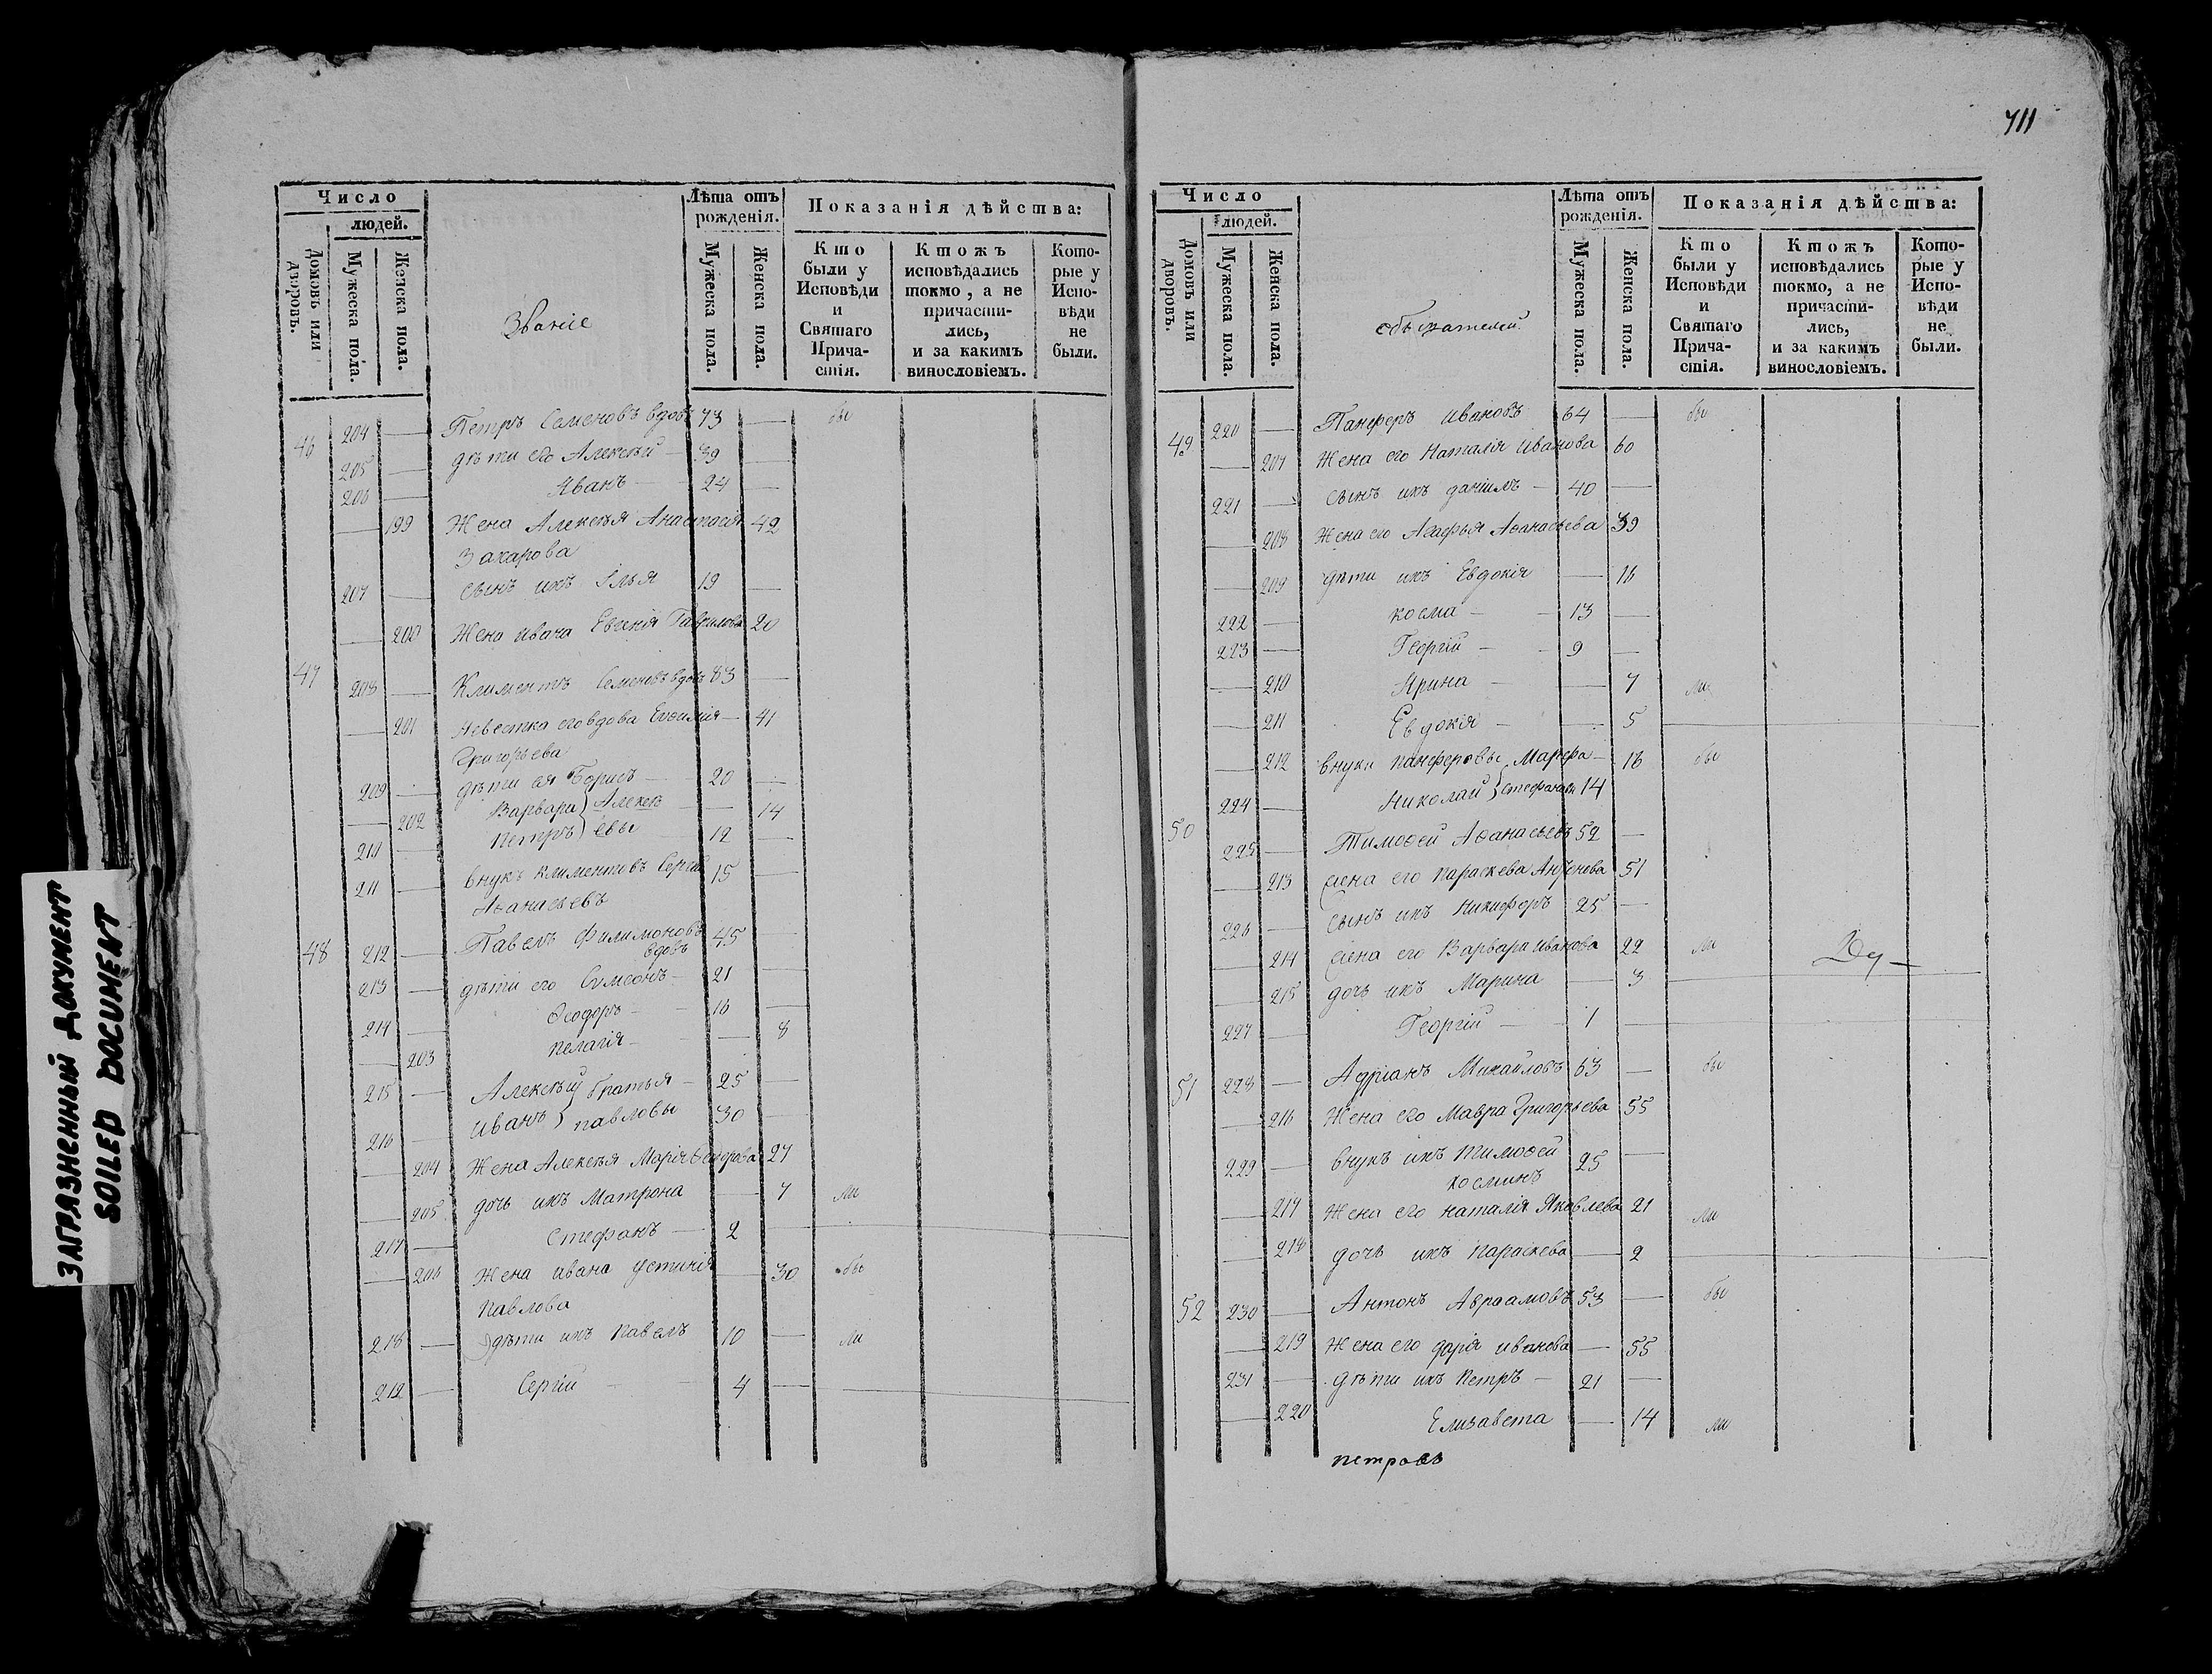 ЗАГРЯЗНЕННЫЙ ДОКУМЕНТ
SOILED DOCUMENT
Число
людей.
Домовъ или дворовъ.
Мужеска пола.
Женска пола.
Званіе
Лѣта отъ рожденія.
Мужеска пола.
Женска пола.
Показанія дѣйства:
Кто были у Исповѣди и Святаго Причастія.
Ктожъ исповѣдались токмо, а не причастились, и за какимъ винословіемъ.
Которые у Исповѣди не были.
46 204 — Петръ Семеновъ вдовъ 73 — бы
205 — дѣти его Алексѣй — 39 —
206 — Иванъ — 24 —
— 199 Жена Алексѣя Анастасія 42
Захарова
207 — сынъ ихъ Илья 19 —
— 200 Жена Ивана Евгенія Гаврилова 20
47 208 — Климентъ Семеновъ вдовъ 83 —
— 201 Невестка его вдова Евѳимія — 41
Григорьева
209 — дѣти ея Борисъ — 20 —
— 202 Варвара } Алексѣ — 14
210 — Петръ } евы — 12 —
211 — внукъ Климентовъ Сергій 15 —
Аѳанасьевъ
48 212 — Павелъ Филимоновъ 45 —
вдовъ
213 — дѣти его Сѵмеонъ — 21 —
214 — Ѳеодоръ — 16 —
— 203 Пелагія — — 8
215 — Алексѣй } братья — 25 —
216 — Иванъ } Павловы 30 —
— 204 Жена Алексѣя Марія Ѳеодорова 27
— 205 дочь ихъ Матрона — 7 ли
217 — Стефанъ — 2
— 206 Жена Ивана Устинія — 30 бы
Павлова
218 — дѣти ихъ Павелъ 10 — ли
219 — Сергій — 4 —
711
Число
людей.
Домовъ или дворовъ.
Мужеска пола.
Женска пола.
обывателей.
Лѣта отъ рожденія.
Мужеска пола.
Женска пола.
Показанія дѣйства:
Кто были у Исповѣди и Святаго Причастія.
Ктожъ исповѣдались токмо, а не причастились, и за какимъ винословіемъ.
Которые у Исповѣди не были.
49 220 — Панферъ Ивановъ 64 — бы
— 207 Жена его Наталія Иванова 60
221 — сынъ ихъ Даніилъ — 40 —
— 208 Жена его Агафья Аѳанасьева 39
— 209 дѣти ихъ Евдокія — 16
222 — Косма — 13 —
223 — Георгій — 9 —
— 210 Ирина — — 7 ли
— 211 Евдокія — — 5
— 212 внуки Панферовы Марѳа — 18 бы
224 — Николай } Стефановы 14
50 225 — Тимоѳей Аѳанасьевъ 52 —
— 213 Жена его Параскева 51
226 — сынъ ихъ Никифоръ 25 —
— 214 Жена его Варвара Иванова 22 ли
— 215 дочь ихъ Марина — 3
227 — Георгій — 1
51 228 — Адріанъ Михайловъ 63 — бы
— 216 Жена его Мавра Григорьева 55
229 — внукъ ихъ Тимоѳей 25 —
Косминъ
— 217 Жена его Наталія Яковлева 21 ли
— 218 дочь ихъ Параскева — 2
52 230 — Антонъ Авраамовъ 53 — бы
— 219 Жена его Дарія Иванова — 55
231 — дѣти ихъ Петръ — 21 —
— 220 Елизавета — 14 ли
Петровъ